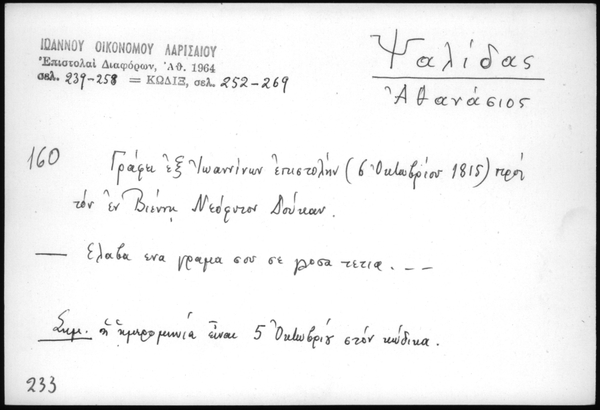 ΙΩΑΝΝΟΥ ΟΙΚΟΝΟΜΟΥ ΛΑΡΙΣΑΙΟΥ
Ἐπιστολαὶ Διαφόρων, Ἀθ. 1964
σελ. 239-258 = ΚΩΔΙΞ, σελ. 252-269
Ψαλίδας
Ἀθανάσιος
160
Γράφει ἐξ Ἰωαννίνων ἐπιστολὴν (6 Ὀκτωβρίου 1815) πρὸς
τὸν ἐν Βιέννῃ Νεόφυτον Δούκαν.
— Ελαβα ενα γραμα σου σε γλοσα τετια. - —
Σημ. ἡ ἡμερομηνία εἶναι 5 Ὀκτωβρίου στὸν κώδικα.
233